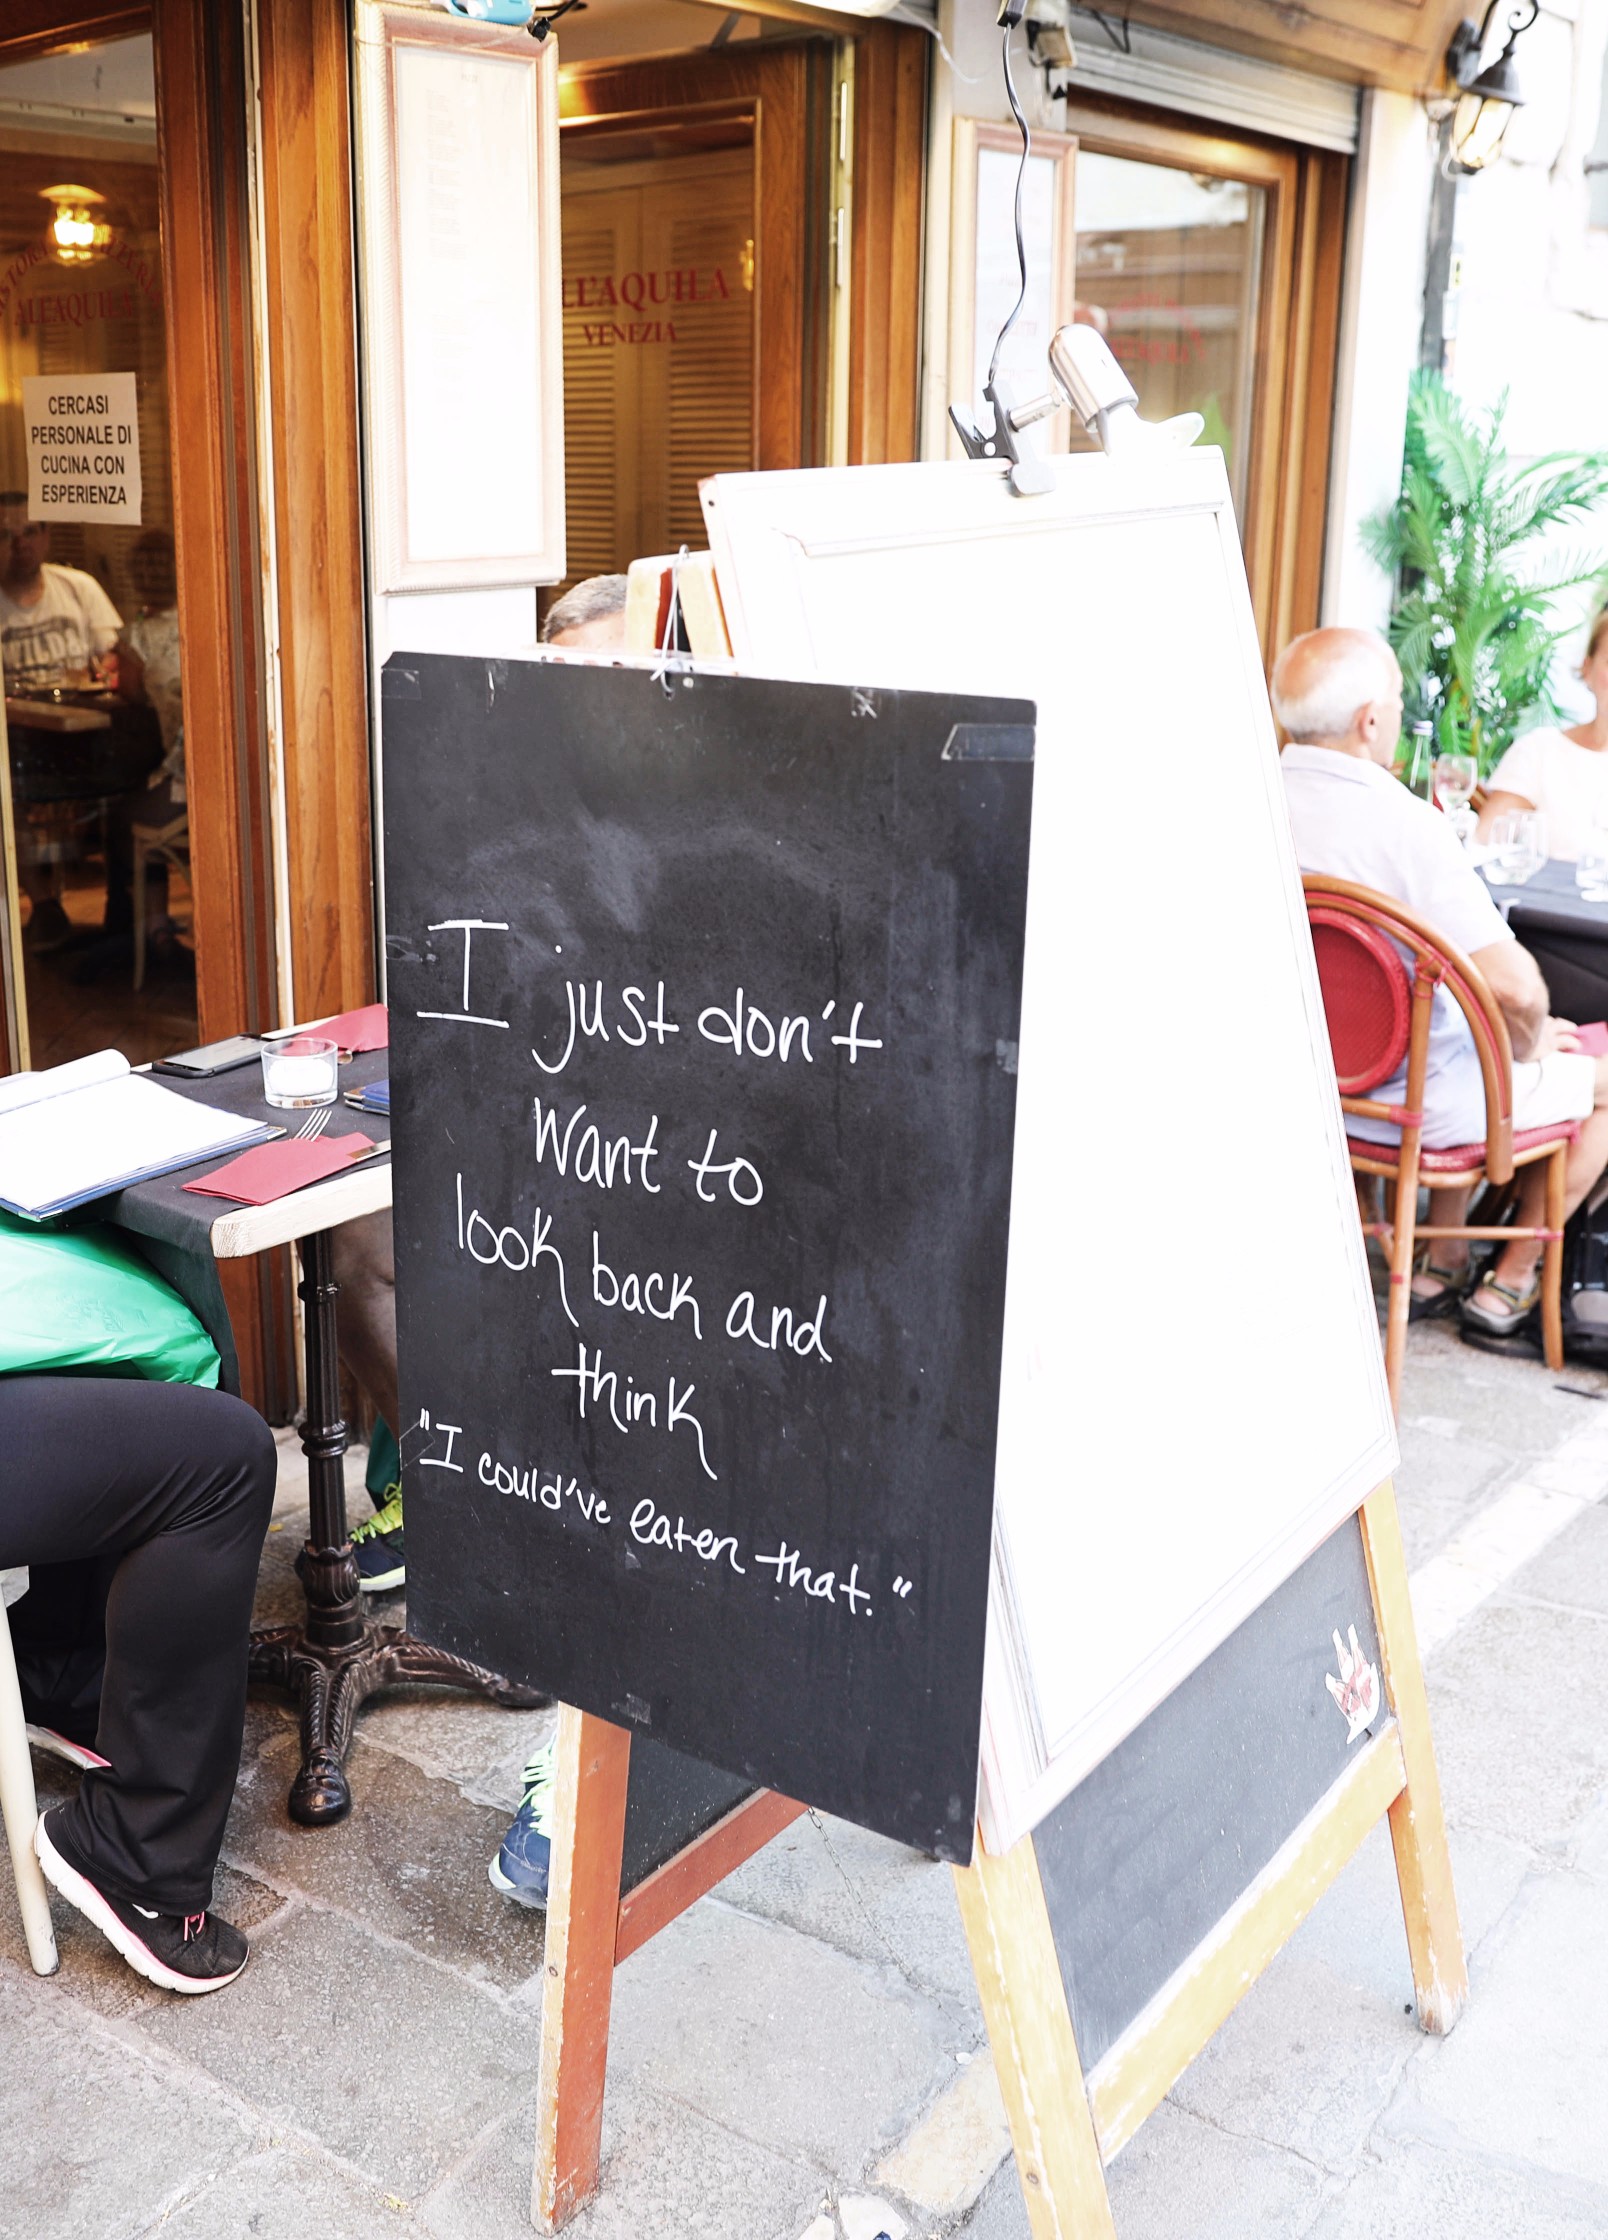 ALL'AQUILA
LL'AQUILA
VENEZIA
CERCASI
PERSONALE DI
CUCINA CON
ESPERIENZA
I just don't
want to
look back and
think
"I could've eaten that."